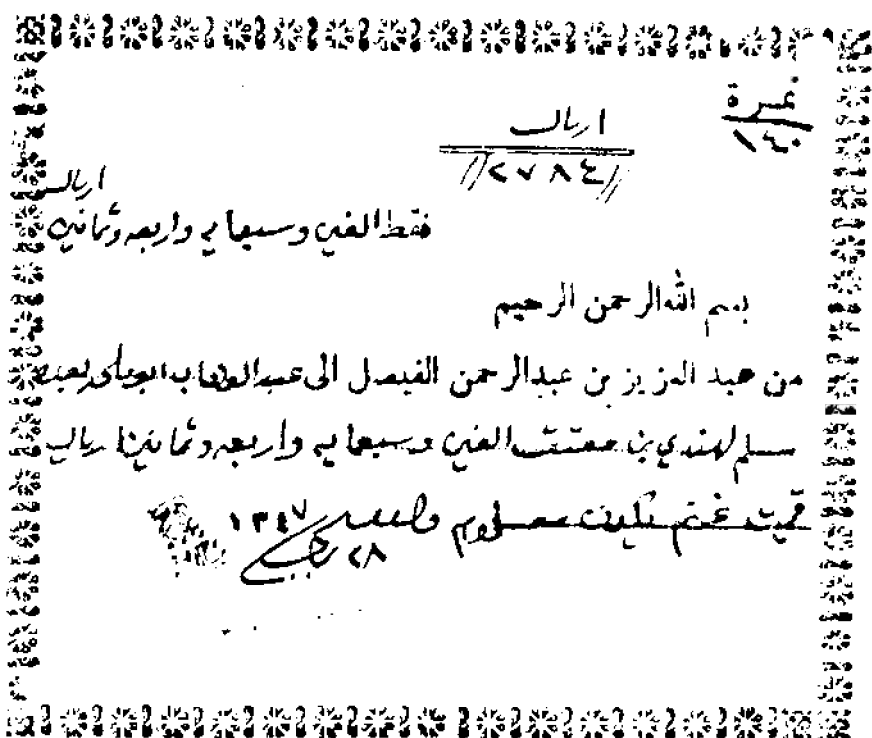 نمرة
١٤٠
اريال
//٢٧٨٤//
اريال
فقط الفين وسبعمايه واربعه وثمانين
بسم الله الرحمن الرحيم
من عبد العزيز بن عبدالرحمن الفيصل الى عبدالوهاب
سلم لهندي بن الفين وسبعمايه واربعه وثمانين اريال
قيمت غنم يكون معلوم والسلام
٢٨ ١٣٤٧